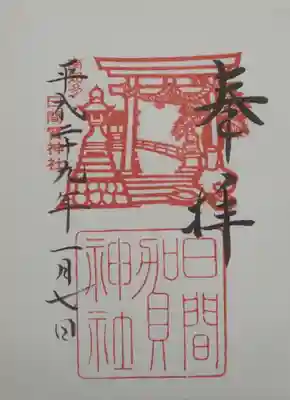 奉拝
日間賀神社
南知多
日間賀神社
平成二十九年一月七日